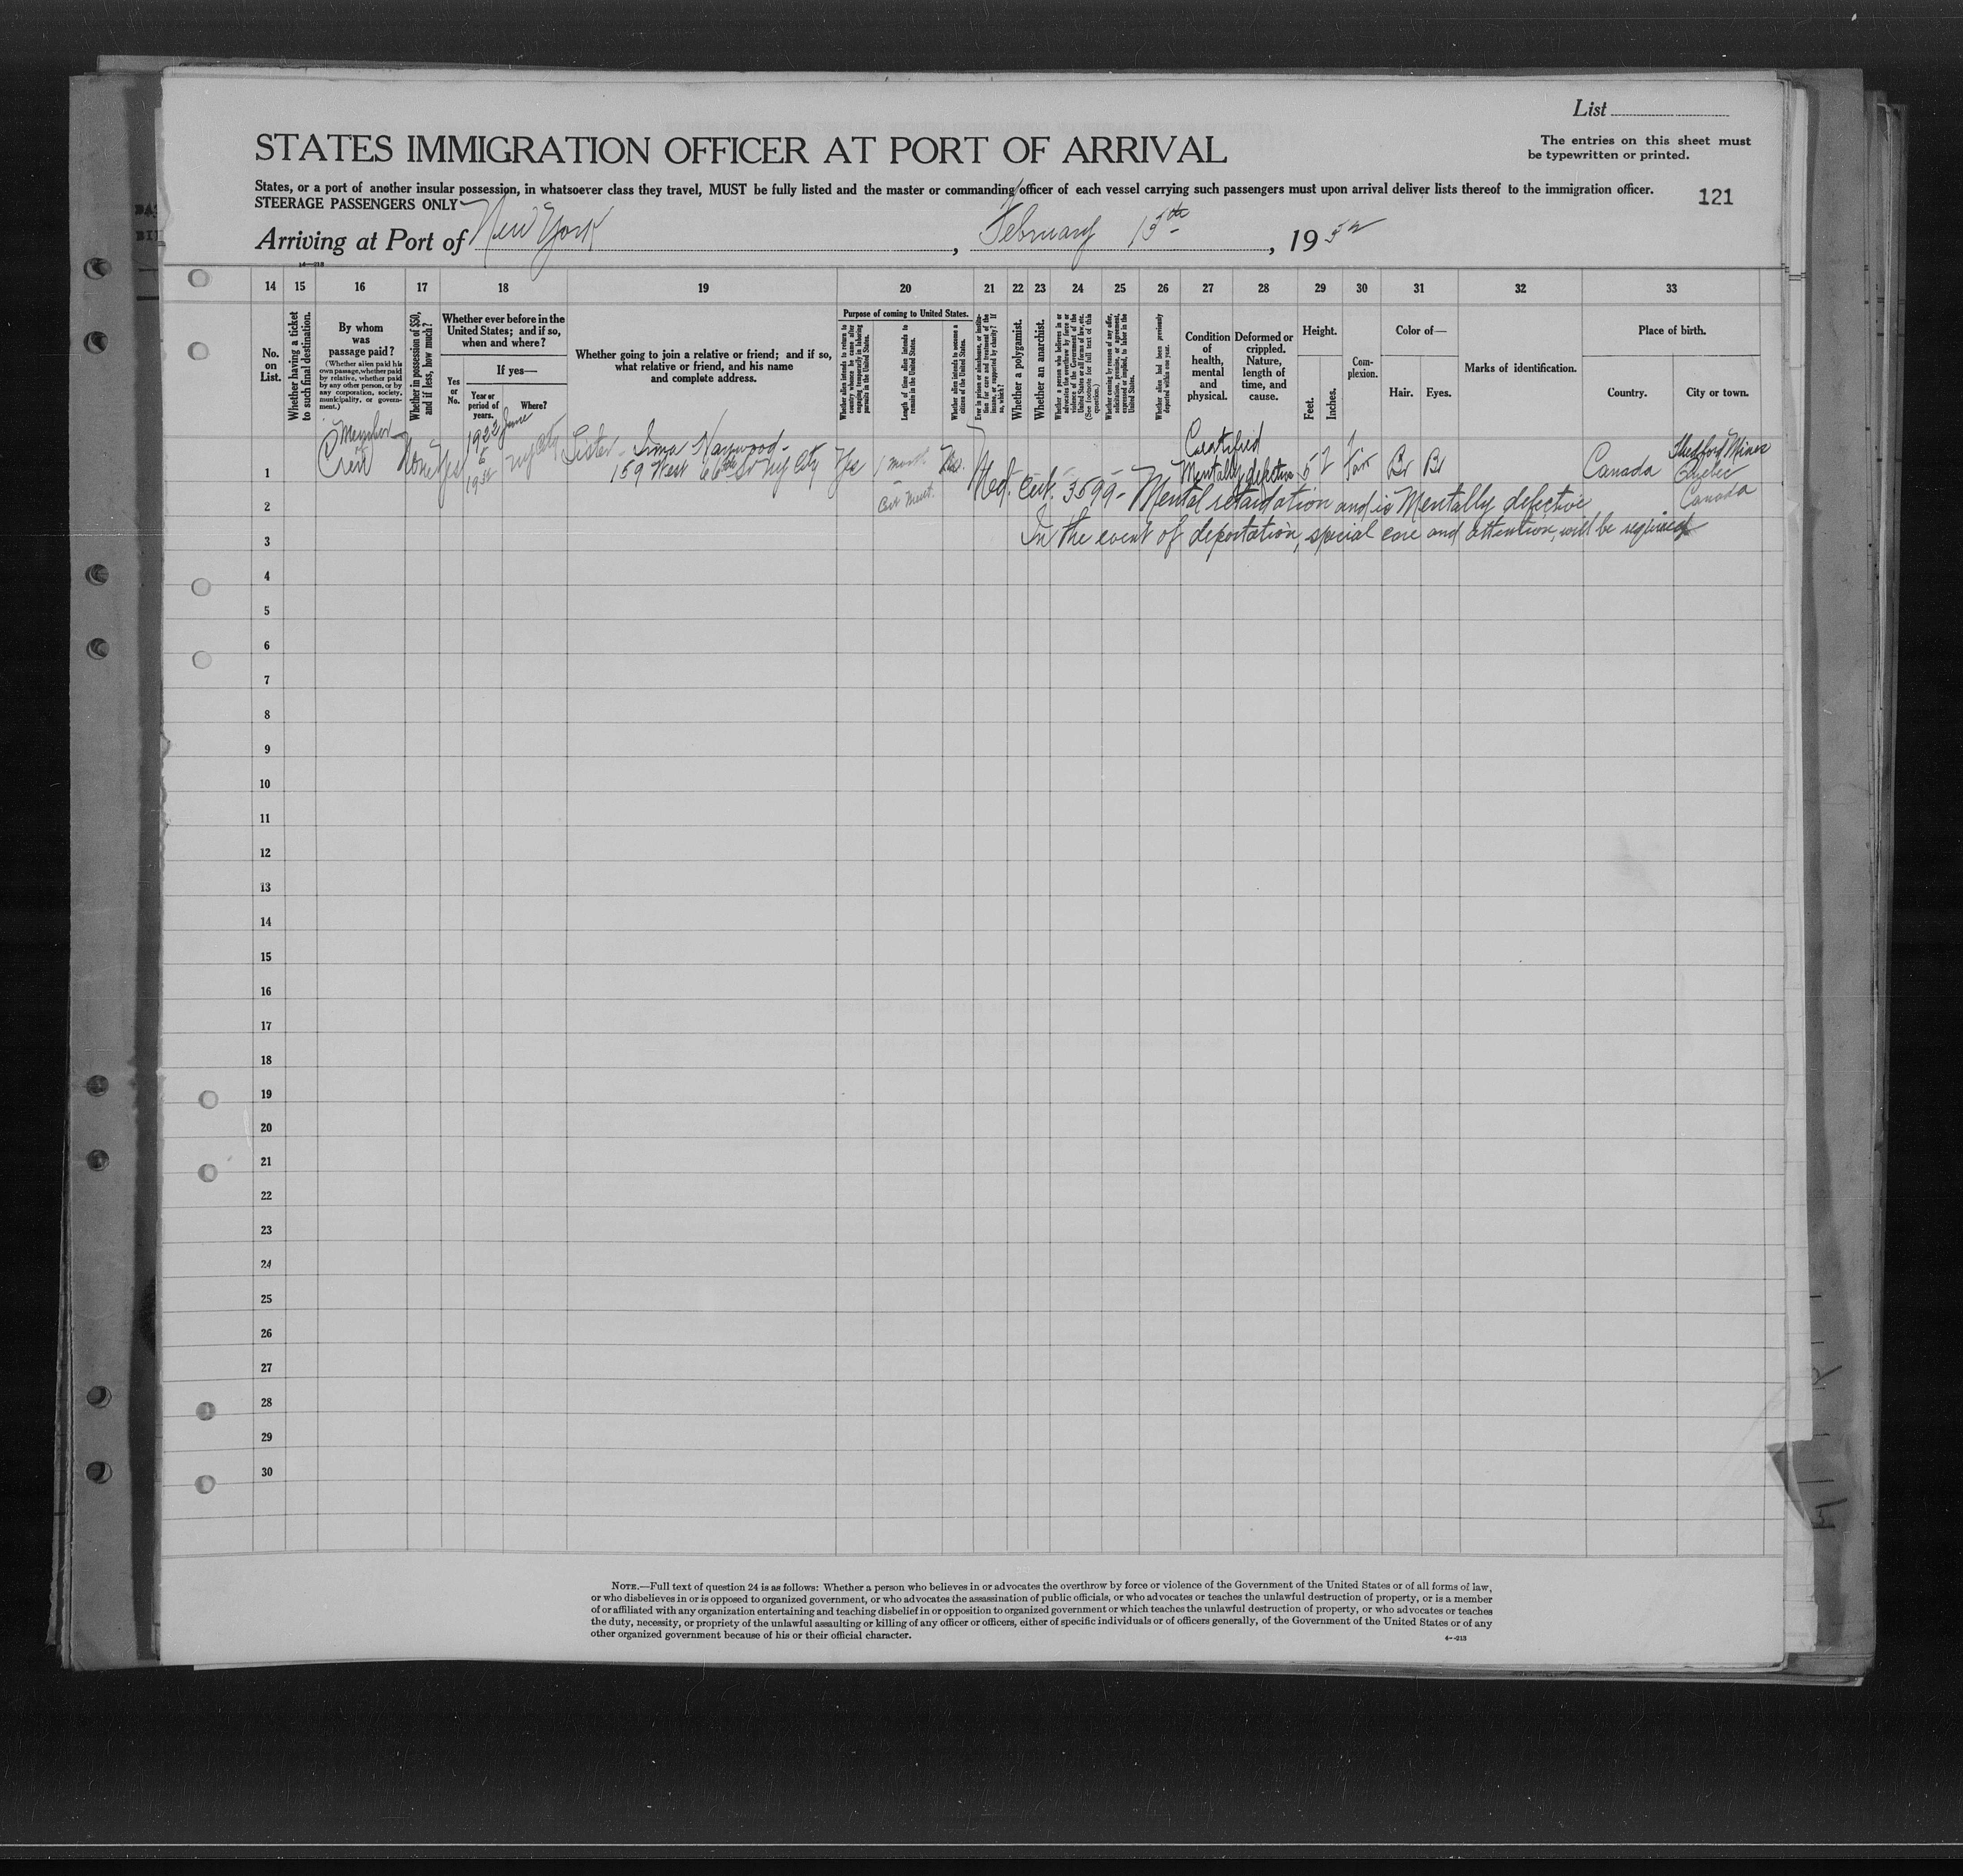 List
The entries on this sheet must
be typewritten or printed.
STATES IMMIGRATION OFFICER AT PORT OF ARRIVAL
States, or a port of another insular possession, in whatsoever class they travel, MUST be fully listed and the master or commanding officer of each vessel carrying such passengers must upon arrival deliver lists thereof to the immigration officer.
STEERAGE PASSENGERS ONLY
121
Arriving at Port of New York, February 15th, 19
14 15 16 17 18 19 20 21 22 23 24 25 26 27 28 29 30 31 32 33
No.
on
List.
Whether having a ticket
to such final destination.
By whom
was
passage paid?
(Whether alien paid his
own passage, whether paid
by relative, whether paid
by any other person, or by
any corporation, society,
municipality, or govern-
ment.)
Whether in possession of $50,
and if less, how much?
Whether ever before in the
United States; and if so,
when and where?
Yes
or
No.
If yes—
Year or
period of
years.
Where?
Whether going to join a relative or friend; and if so,
what relative or friend, and his name
and complete address.
Purpose of coming to United States.
Whether alien intends to return to
country whence he came after
engaging temporarily in laboring
pursuits in the United States.
Length of time alien intends to
remain in the United States.
Whether alien intends to become a
citizen of the United States.
Ever in prison or almshouse, or institu-
tion for care and treatment of the
insane, or supported by charity? If
so, which?
Whether a polygamist.
Whether an anarchist.
Whether a person who believes in or
advocates the overthrow by force or
violence of the Government of the
United States or all forms of law, etc.
(See footnote for full text of this
question.)
Whether coming by reason of any offer,
solicitation, promise, or agreement,
expressed or implied, to labor in the
United States.
Whether alien had been previously
deported within one year.
Condition
of
health,
mental
and
physical.
Deformed or
crippled.
Nature,
length of
time, and
cause.
Height.
Feet.
Inches.
Com-
plexion.
Color of—
Hair.
Eyes.
Marks of identification.
Place of birth.
Country.
City or town.
Member
of
Crew
None
Yes
1922
June
NY City
Sister - Haywood -
159 West 66th St NY City
Yes
1 month
Certified
Mentally defective
5
Br
Br
Canada
Thedford Mines
Quebec
Canada
1
Med. Cert. 3599 - Mental retardation and is Mentally defective
2
In the event of deportation, special care and attention, will be required
3
4
5
6
7
8
9
10
11
12
13
14
15
16
17
18
19
20
21
22
23
24
25
26
27
28
29
30
NOTE.—Full text of question 24 is as follows: Whether a person who believes in or advocates the overthrow by force or violence of the Government of the United States or of all forms of law,
or who disbelieves in or is opposed to organized government, or who advocates the assassination of public officials, or who advocates or teaches the unlawful destruction of property, or is a member
of or affiliated with any organization entertaining and teaching disbelief in or opposition to organized government or which teaches the unlawful destruction of property, or who advocates or teaches
the duty, necessity, or propriety of the unlawful assaulting or killing of any officer or officers, either of specific individuals or of officers generally, of the Government of the United States or of any
other organized government because of his or their official character.